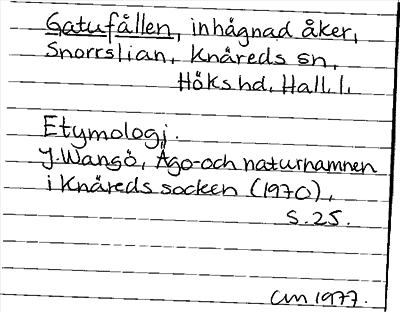 Gatufållen, inhägnad åker,
Snorrslian, Knäreds sn,
Höks hd, Hall. l.
Etymologi.
J. Wangö, Ägo- och naturnamnen
i Knäreds socken (1970),
s. 25.
CM 1977.